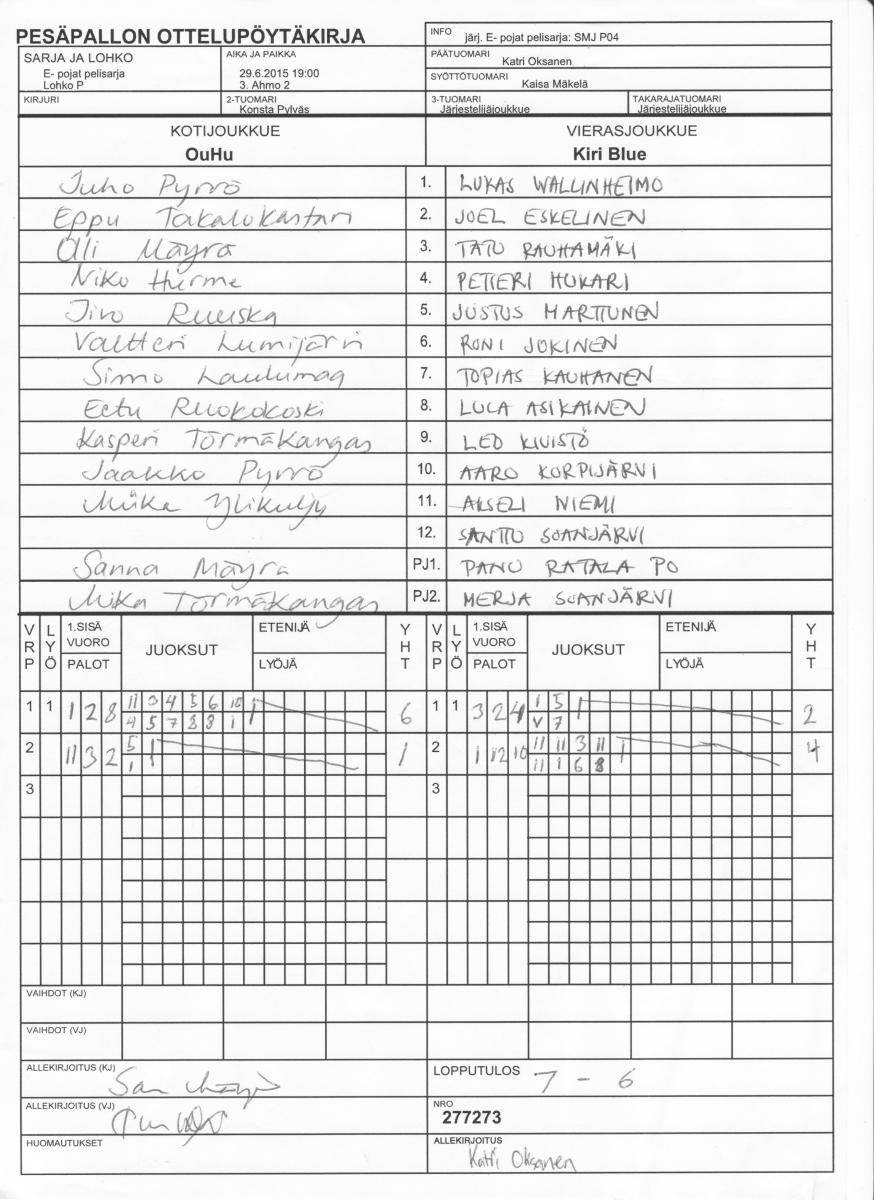 PESÄPALLON OTTELUPÖYTÄKIRJA
INFO järj. E- pojat pelisarja: SMJ P04
SARJA JA LOHKO
E- pojat pelisarja
Lohko P
AIKA JA PAIKKA
29.6.2015 19:00
3. Ahmo 2
PÄÄTUOMARI
Katri Oksanen
SYÖTTÖTUOMARI
Kaisa Mäkelä
KIRJURI
2-TUOMARI
Konsta Pylväs
3-TUOMARI
Järjestelijäjoukkue
TAKARAJATUOMARI
Järjestelijäjoukkue
KOTIJOUKKUE
OuHu
VIERASJOUKKUE
Kiri Blue
Juho Pyrrö 1. LUKAS WALLINHEIMO
Eppu Takalokastari 2. JOEL ESKELINEN
Olli Mäyrä 3. TATU RAUHAMÄKI
Niko Hurme 4. PETTERI HUKARI
Jiro Ruuska 5. JUSTUS MARTTUNEN
Valtteri Lumijärvi 6. RONI JOKINEN
Simo Laulumaa 7. TOPIAS KAUHANEN
Eetu Ruokokoski 8. LUCA ASIKAINEN
Kasperi Törmäkangas 9. LEO KIVISTÖ
Jaakko Pyrrö 10. AARO KORPIJÄRVI
Miika Ylikulju 11. AKSELI NIEMI
12. SANTTU SUANJÄRVI
Sanna Mäyrä PJ1. PANU RATALA PO
Mika Törmäkangas PJ2. MERJA SUANJÄRVI
VRP LYÖ 1.SISÄ VUORO PALOT JUOKSUT ETENIJÄ LYÖJÄ YHT VRP LYÖ 1.SISÄ VUORO PALOT JUOKSUT ETENIJÄ LYÖJÄ YHT
1 1 1 2 8 11 3 4 5 6 10 6 1 1 3 2 4 1 5 2
4 5 7 8 8 1 V 7
2 11 3 2 5 1 2 1 12 10 11 11 3 11 4
1 11 1 6 8
3 3
VAIHDOT (KJ)
VAIHDOT (VJ)
ALLEKIRJOITUS (KJ)
LOPPUTULOS 7 - 6
ALLEKIRJOITUS (VJ)
NRO
277273
HUOMAUTUKSET
ALLEKIRJOITUS
Katri Oksanen